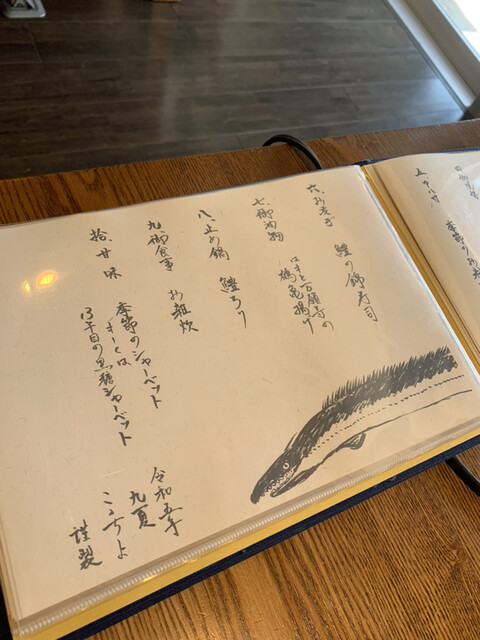 五 中八寸
季節のお
六 お凌ぎ
鱧の錦寿司
七 御油物
はもと万願寺の
鶴亀揚げ
八 止め鍋 鱧ちり
九 御食事 お雑炊
拾 甘味
季節のシャーベット
13年目の黒糖シャーベット
令和五年
九夏
謹製